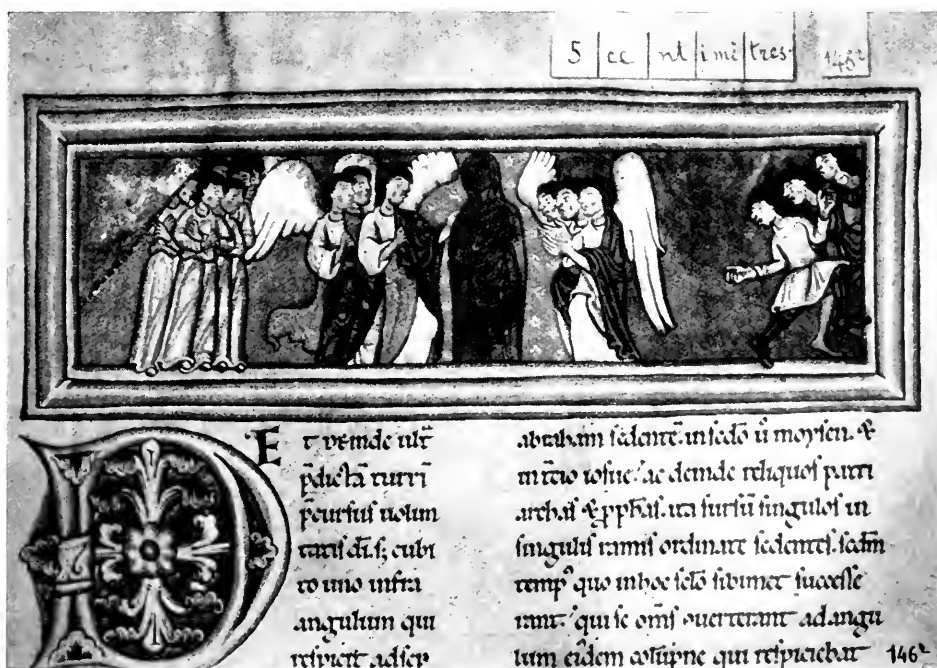 5 ce nt imè tres.
146r
D
Et deinde ult̄
p̄dictā turrī
p̄cursus uolun
tatis dī. s; cubi
to uno infra
angulum qui
respicit ad sep
abraham sedentē. in scdō ū moysen. &
in t̄cio iosue. ac deinde reliquos patri
archas & ꝓphas. ita sursū singulos in
singulis ramis ordinate sedentes. scdm
temp⁹ quo in hoc sclo sibimet successe
rant. qui se om̄s ouerterant ad angu
lum eidem colūpne qui respiciebat
146r